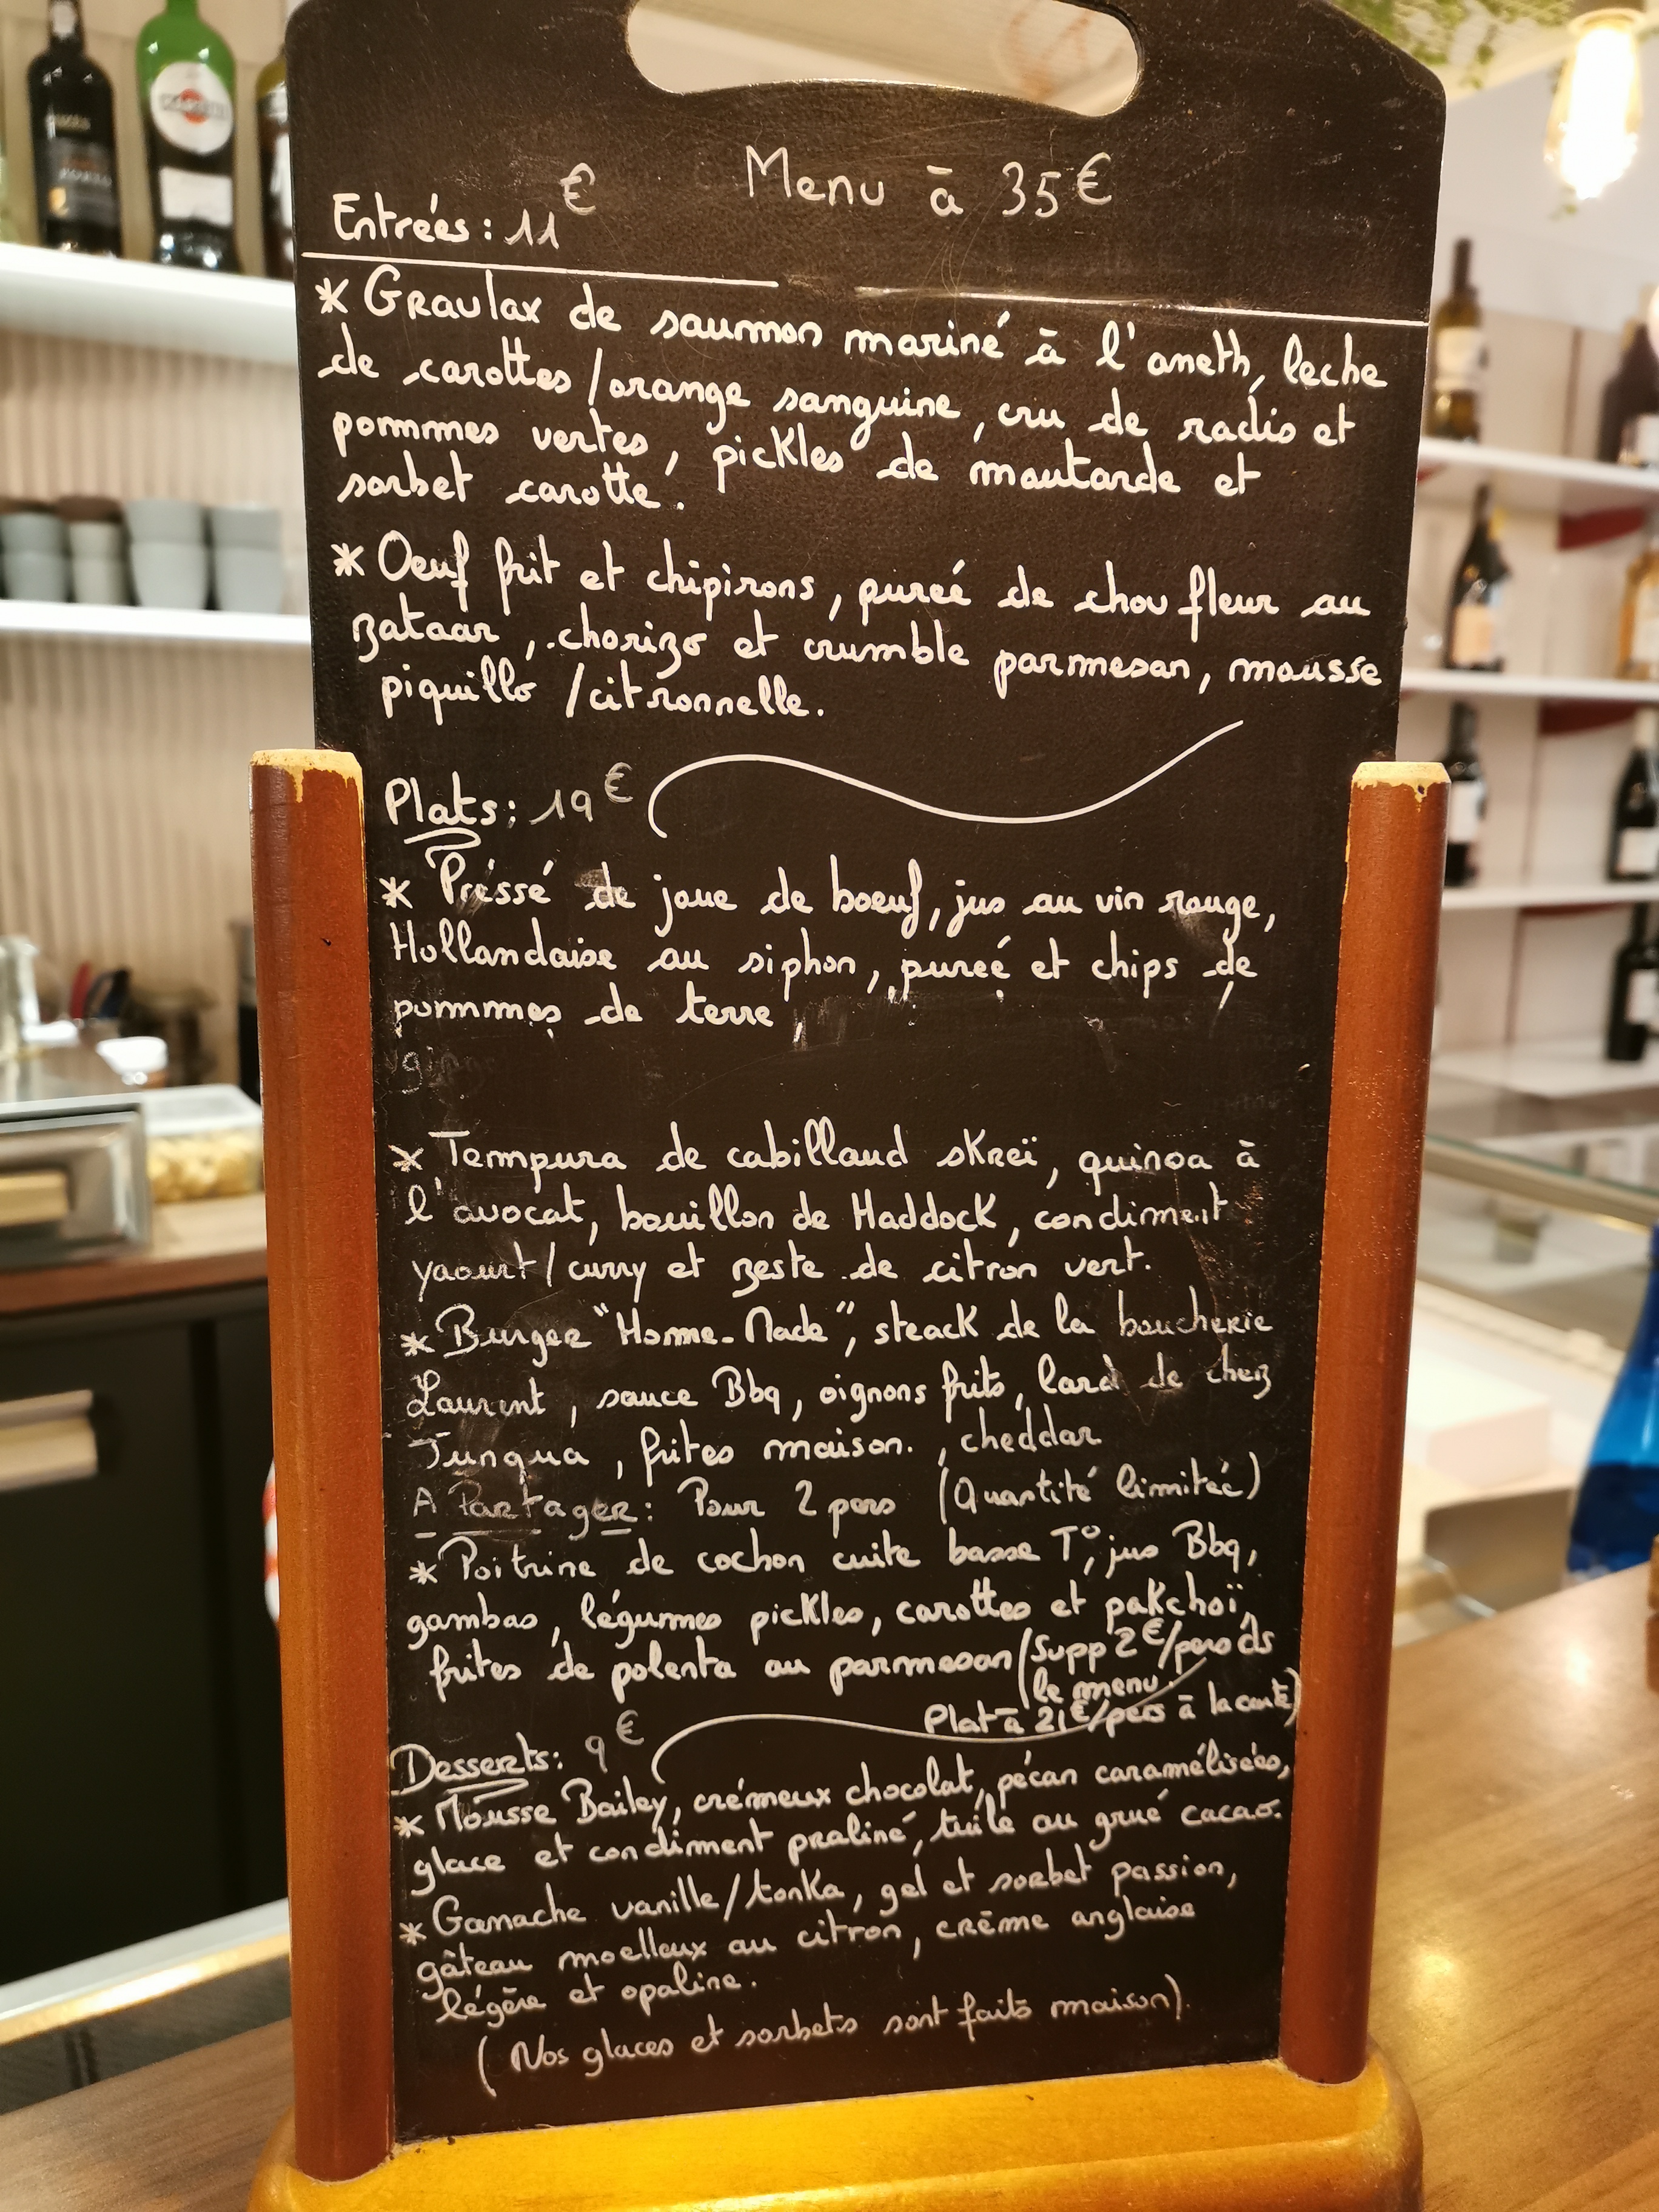 MARTINI
Menu à 35€
Entrées : 11€
* Gravlax de saumon mariné à l'aneth, leche
de carottes / orange sanguine, cru de radis et
pommes vertes, pickles de moutarde et
sorbet carotte.
* Oeuf frit et chipirons, pureé de chou fleur au
zataar, chorizo et crumble parmesan, mousse
piquillo / citronnelle.
Plats : 19€
* Préssé de joue de boeuf, jus au vin rouge,
Hollandaise au siphon, pureé et chips de
pommes de terre
* Tempura de cabillaud skreï, quinoa à
l'avocat, bouillon de Haddock, condiment
yaourt / curry et zeste de citron vert.
* Burger "Home-Made", steack de la boucherie
Laurent, sauce Bbq, oignons frits, lard de chez
Junqua, frites maison. , cheddar
A Partager : Pour 2 pers (Quantité limitée)
* Poitrine de cochon cuite basse T°, jus Bbq,
gambas, légumes pickles, carottes et pakchoï,
frites de polenta au parmesan (Supp 2€/pers ds
le menu.
Plat à 21€/pers à la carte)
Desserts : 9€
* Mousse Bailey, crémeux chocolat, pécan caramélisées,
glace et condiment praliné, tuile au grué cacao.
* Ganache vanille / tonka, gel et sorbet passion,
gâteau moelleux au citron, crème anglaise
légère et opaline.
(Nos glaces et sorbets sont faits maison).